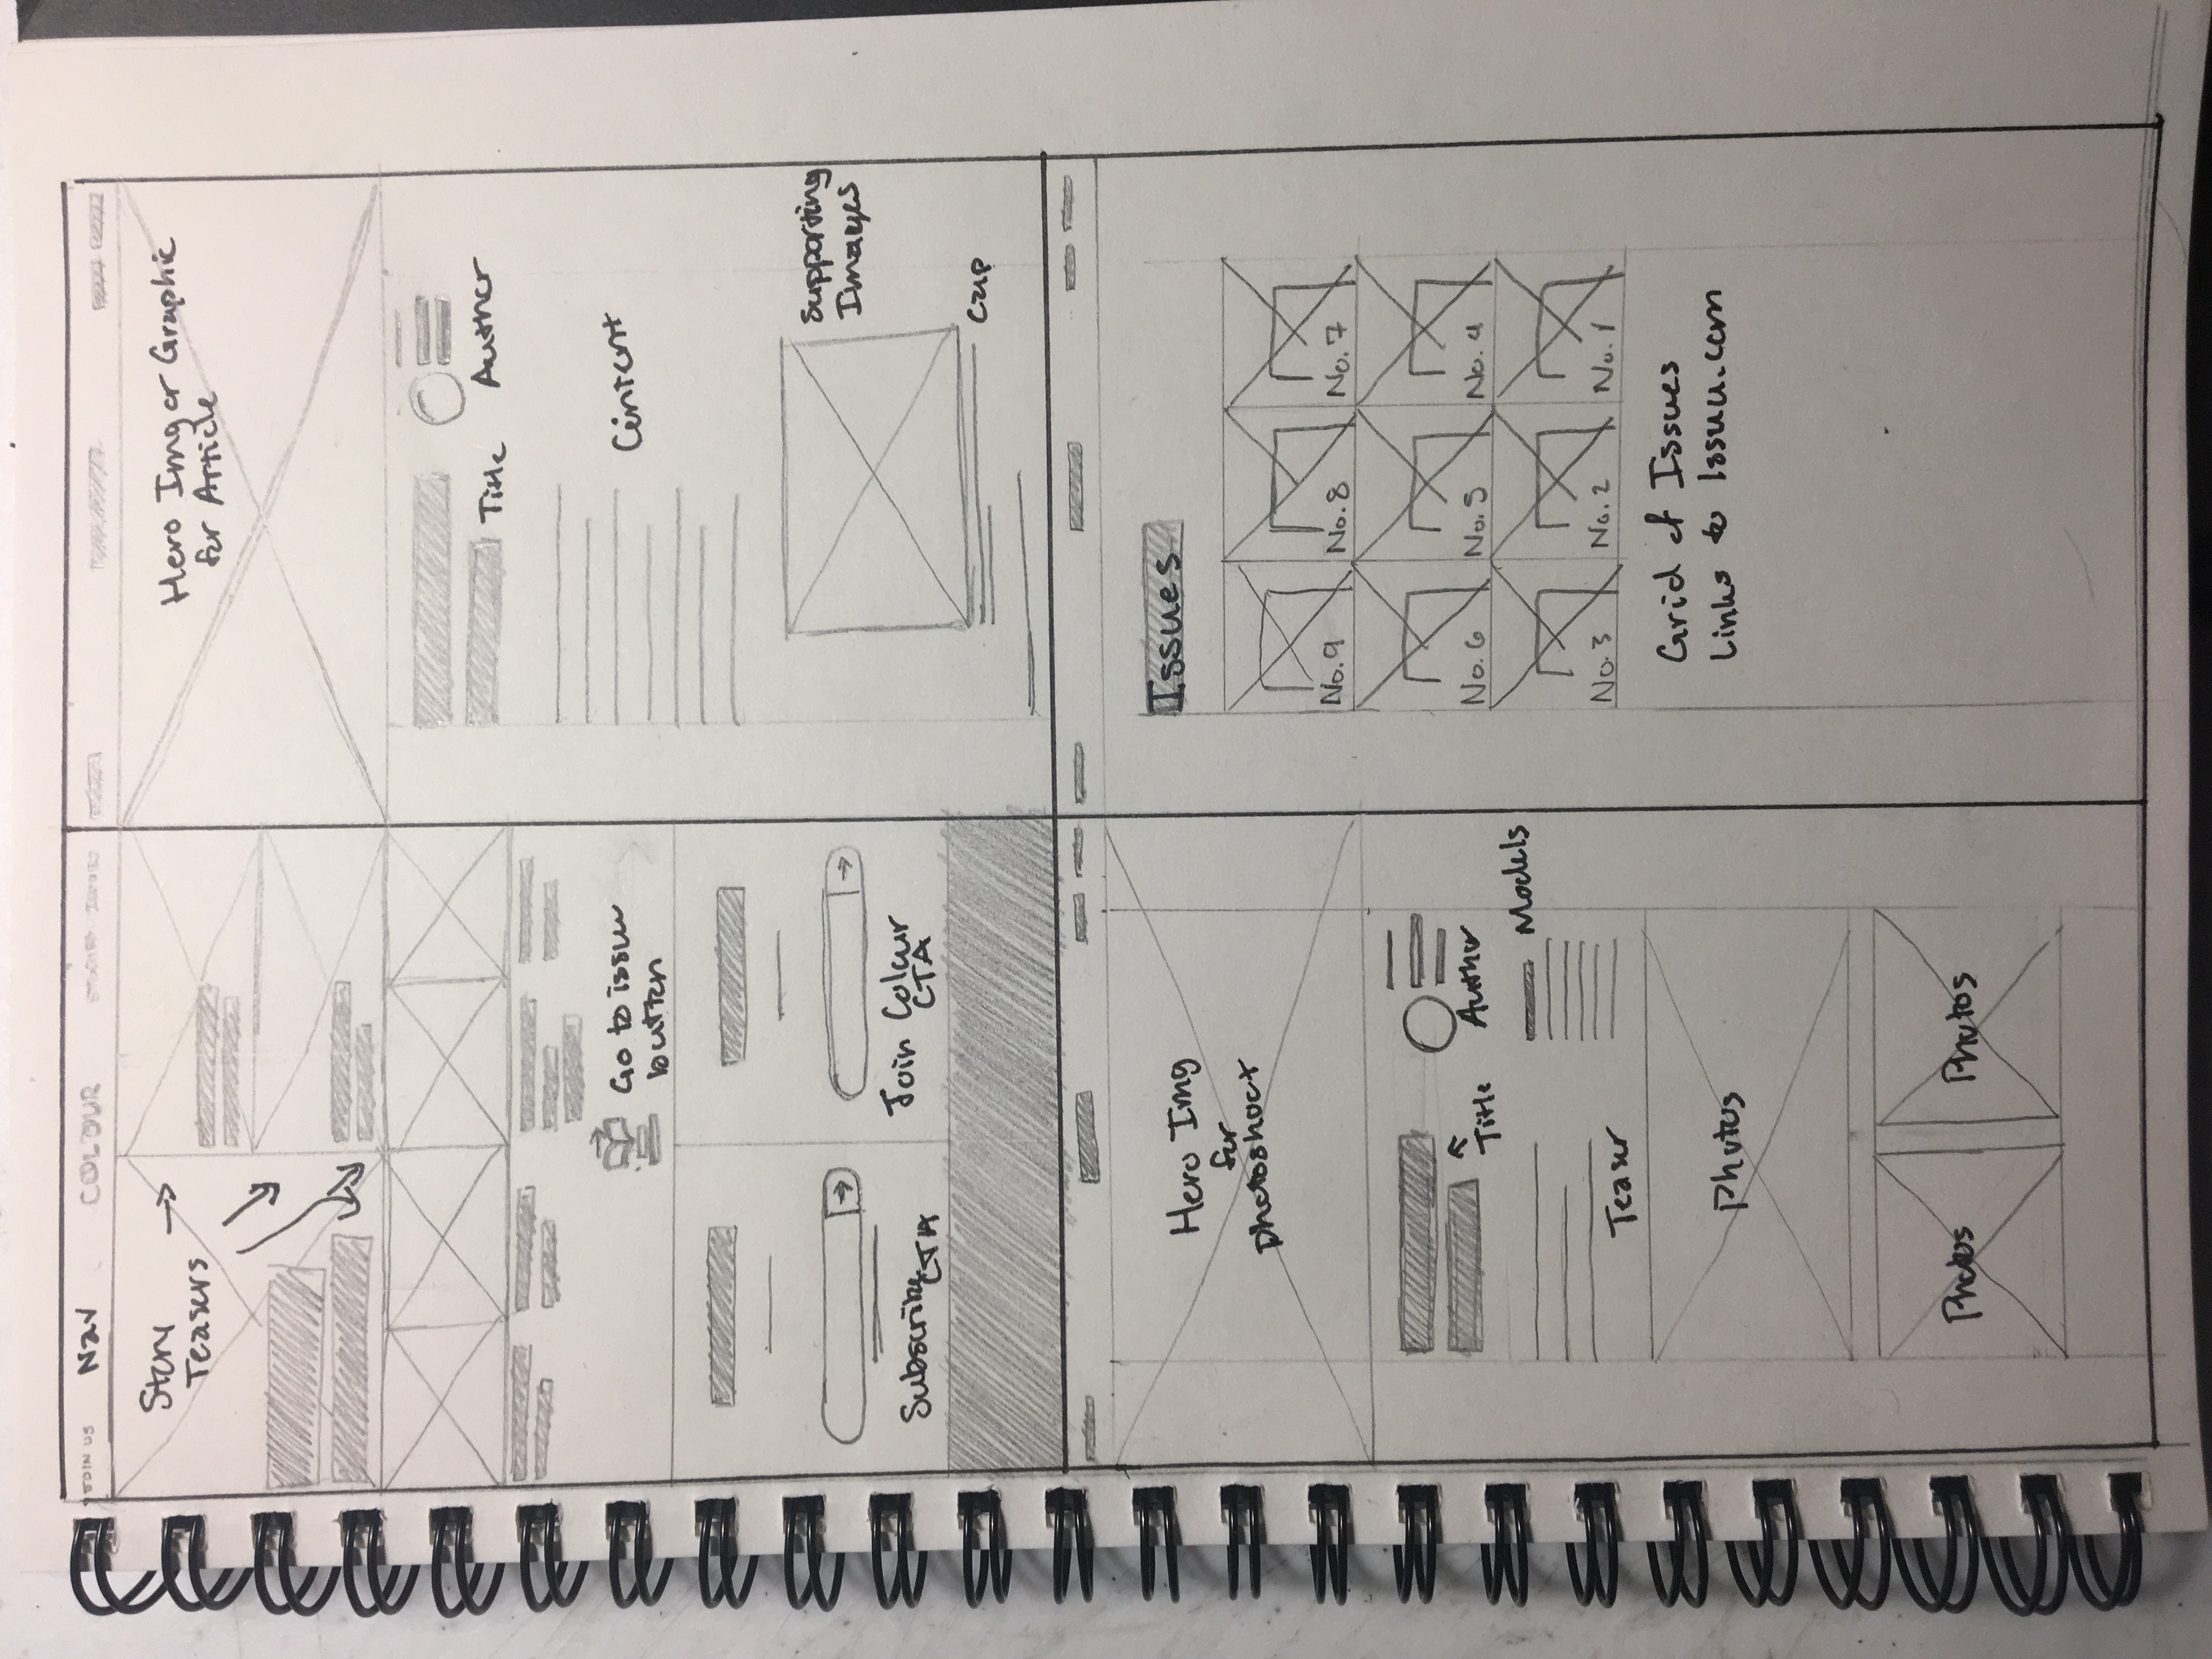 JOIN US
Nav
COLOUR
STORIES ISSUES
Story
Teasers
Go to issue
button
Subscribe
CTA
Join Colour
CTA
Hero Img or Graphic
for Article
Title
Author
Content
Supporting
Images
Cap
Hero Img
for
photoshoot
Title
Author
Models
Teaser
Photos
Photos
Photos
Issues
No.9
No.8
No.7
No.6
No.5
No.4
No.3
No.2
No.1
Grid of Issues
Links to Issuu.com